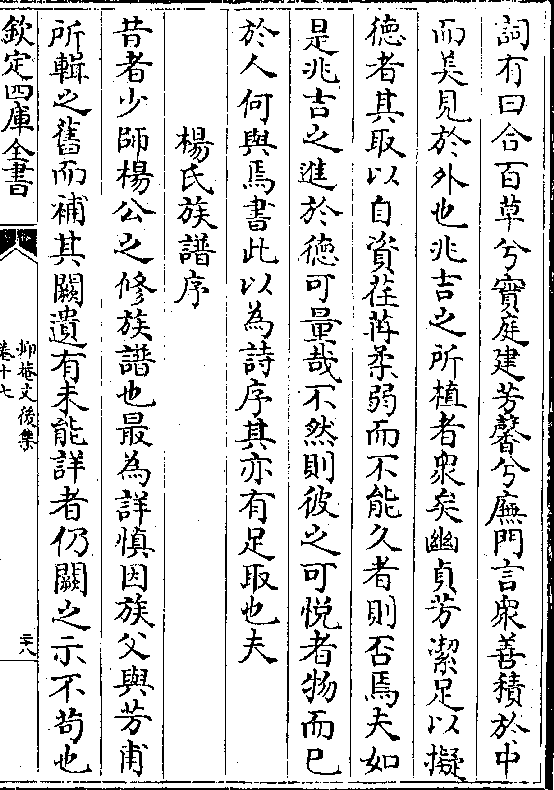 詞有曰合百草兮實庭建芳馨兮廡門言衆善積於中
而美見於外也兆吉之所植者衆矣幽貞芳潔足以擬
德者其取以自資荏苒柔弱而不能久者則否焉夫如
是兆吉之進於德可量哉不然則彼之可悦者物而已
於人何與焉書此以為詩序其亦有足取也夫
楊氏族譜序
昔者少師楊公之修族譜也最為詳慎因族父與芳甫
所輯之舊而補其闕遺有未能詳者仍闕之示不苟也
欽定四庫全書
抑菴文後集
卷十七
二十八